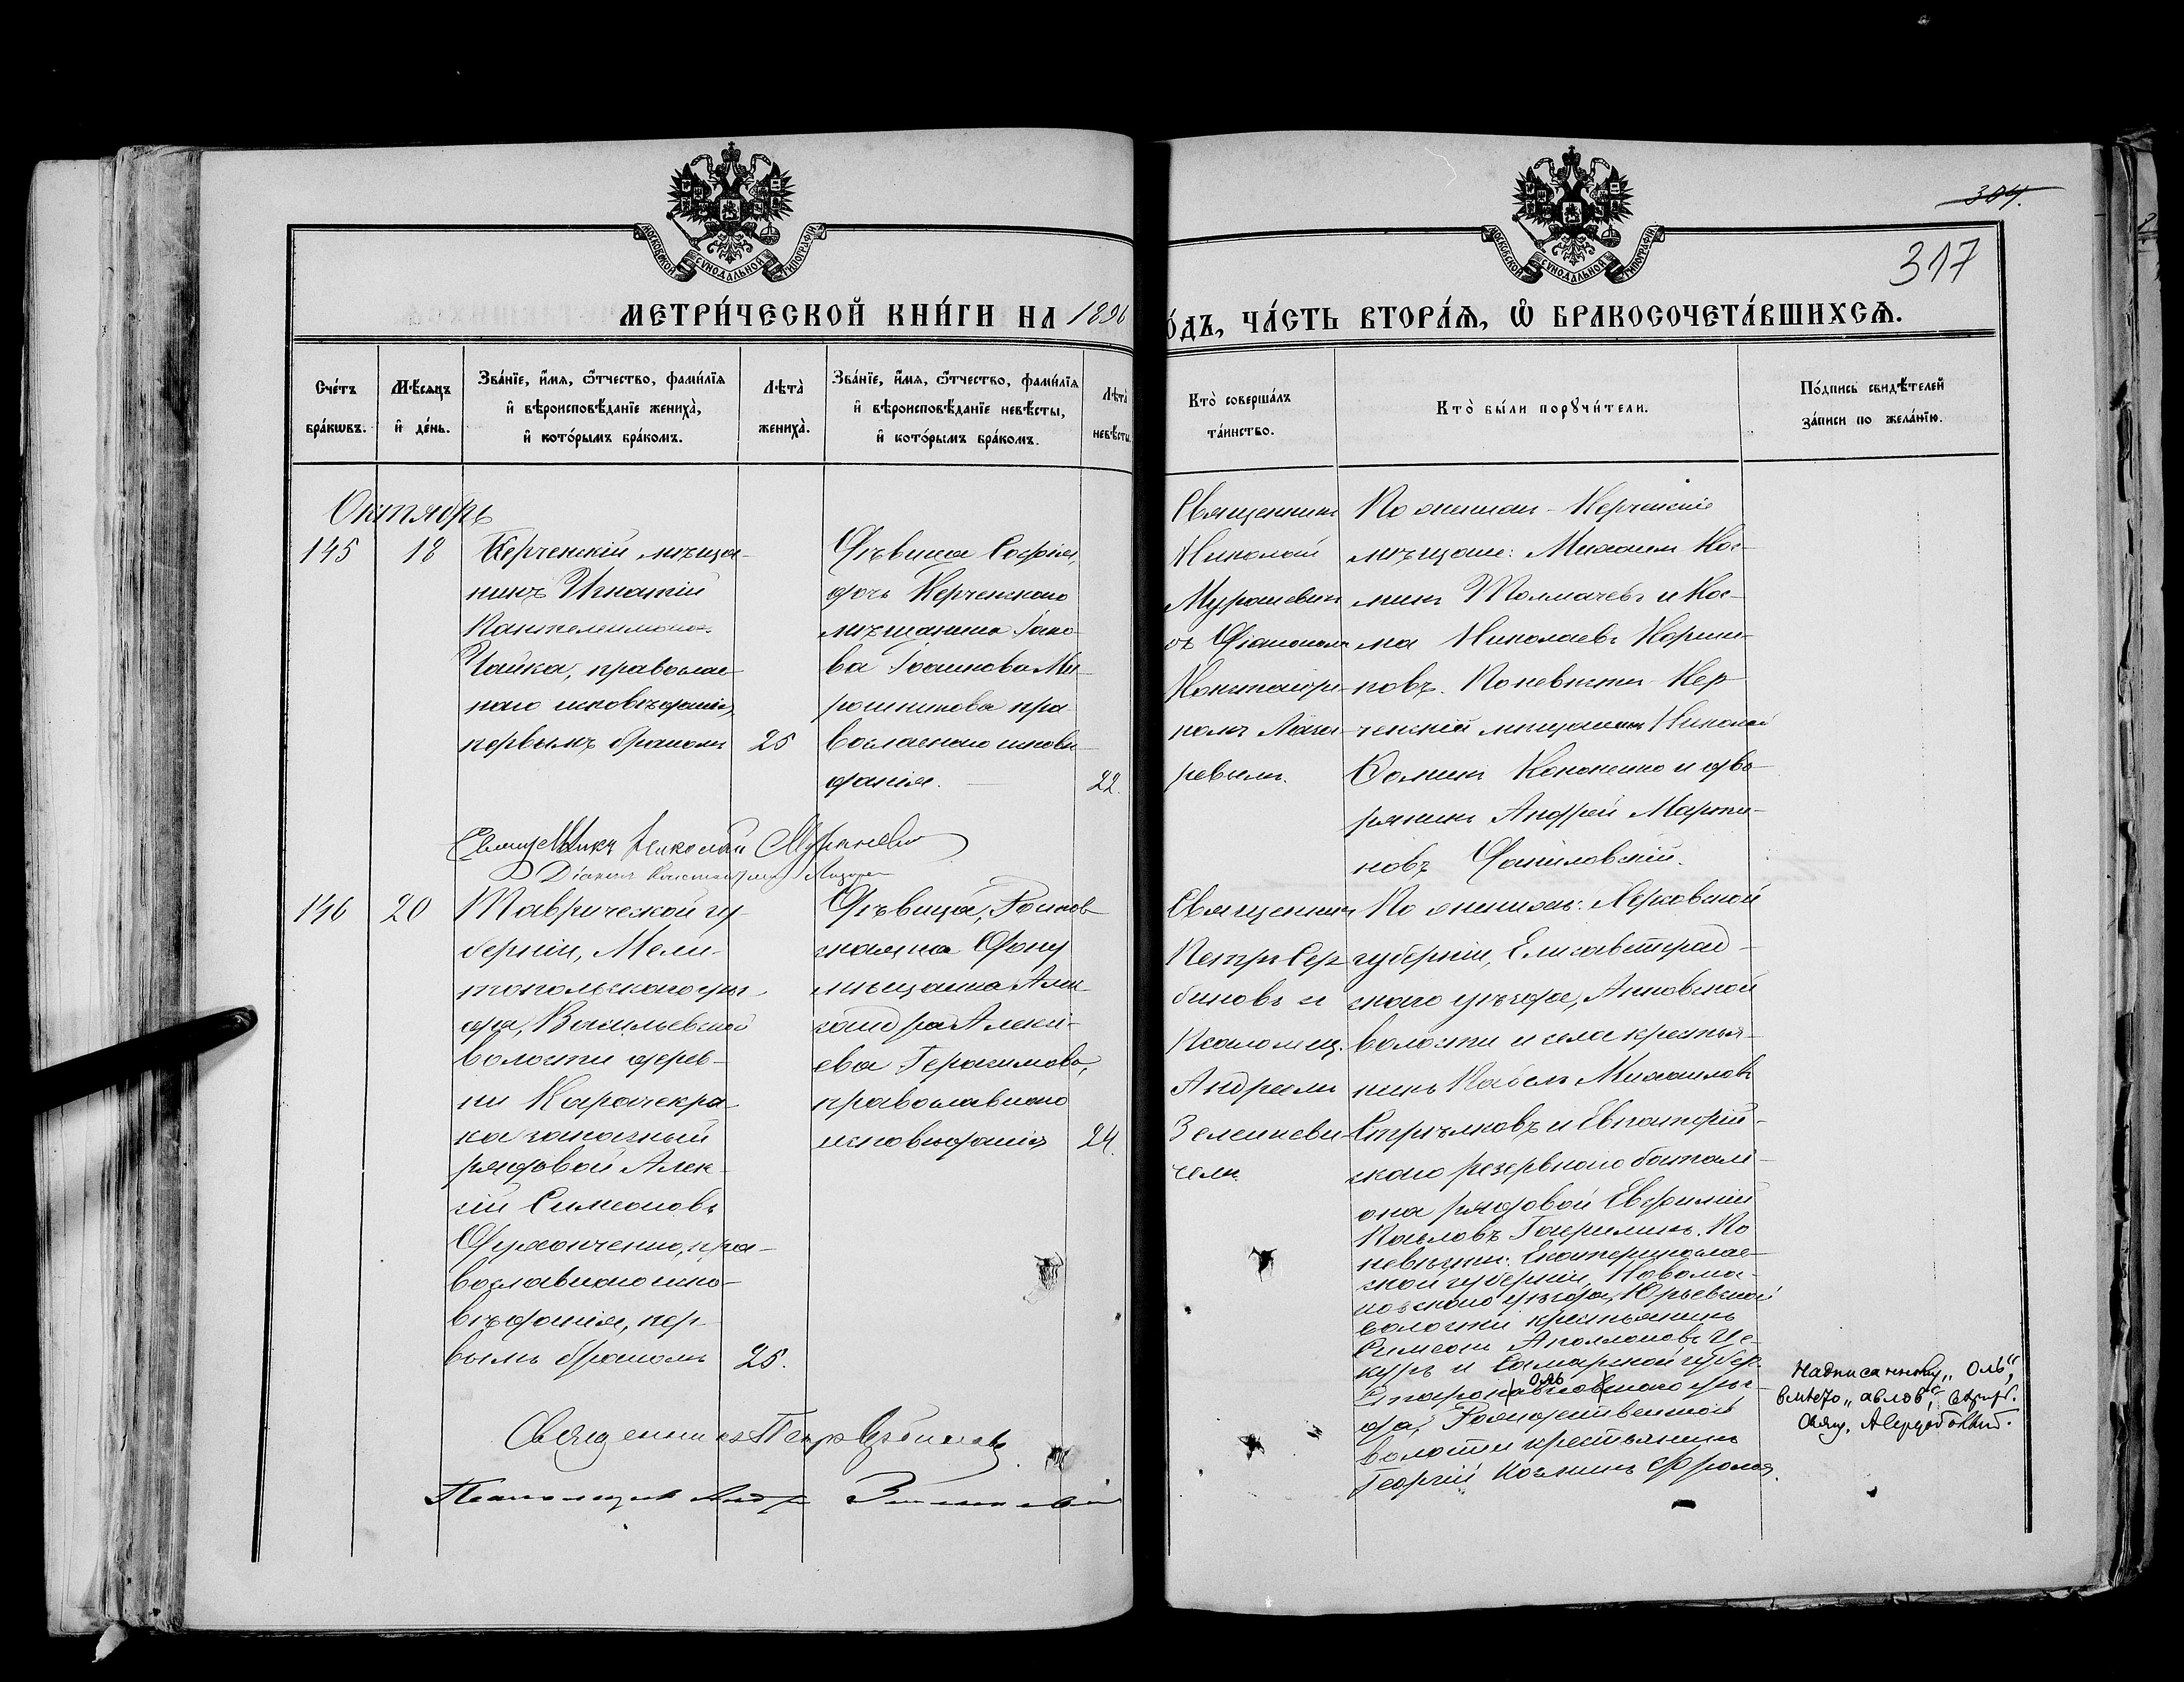 304.
317
МОСКОВСКОЙ СУНОДАЛЬНОЙ ТИПОГРАФІИ
МОСКОВСКОЙ СУНОДАЛЬНОЙ ТИПОГРАФІИ
МЕТРИ́ЧЕСКОЙ КНИ́ГИ НА 1896
О́ДЪ, ЧА́СТЬ ВТОРА́Я, Ѡ БРАКОСОЧЕТА́ВШИХСЯ.
Сче́тъ
бра́кѡвъ.
Мѣ́сяцъ
и҆ де́нь.
Зва́нїе, и҆́мя, ѻ҆́тчество, фами́лїя
и҆ вѣроисповѣ́данїе жениха̀,
и҆ кото́рымъ бра́комъ.
Лѣта̀
жениха̀.
Зва́нїе, и҆́мя, ѻ҆́тчество, фами́лїя
и҆ вѣроисповѣ́данїе невѣ́сты,
и҆ кото́рымъ бра́комъ.
Лѣта̀
невѣ́сты.
Кто̀ соверша́лъ
та́инство.
Кто̀ бы́ли порꙋчи́тели.
По́дпись свидѣ́телей
за́писи по жела́нїю.
Октябрь
145
18
Керченскій мѣща-
нинъ Игнатій
Пантелеимонов
Чайка, православ-
наго исповѣданія,
первымъ бракомъ
25
Дѣвица Софія,
дочь Керченскаго
мѣщанина Іако-
ва Іоаннова Ми-
рошникова пра-
вославнаго исповѣ-
данія.
22.
Священникъ
Николай
Мурашевич
съ Діакономъ
Константи-
номъ Лаза-
ревымъ.
По женихѣ - Керченскіе
мѣщане: Михаилъ Кос-
минъ Толмачевъ и Кос-
ма Николаевъ Корни-
ковъ. По невѣстѣ Кер-
ченскій мѣщанинъ Николай
Ѳоминъ Кононенко и дво-
рянинъ Андрей Марти-
новъ Даниловскій.
Священникъ Николай
Діаконъ Константинъ Лазарев
146
20
Таврической гу-
берніи, Мели-
топольскаго уѣз-
да, Васильевской
волости дерев-
ни Карачекра-
ка запасный
рядовой Алек-
сій Симеоновъ
православнаго испо-
вѣданія, пер-
вымъ бракомъ
25.
Дѣвица,
мѣщанка Алек-
сандра Алексі-
ева Герасимова,
православнаго
исповѣданія
24.
Священникъ
Петръ Сер-
биновъ и
Псаломщ.
Андрей
Зеленкеви-
чемъ
По женихѣ: Херсонской
губерніи, Елисаветград-
скаго уѣзда, Анновской
волости и села крестья-
нинъ Павелъ Михаиловъ
Стрѣлковъ и Евпаторій-
скаго резервнаго баталі-
она рядовой Евфимій
Павловъ Гаврилинъ. По
невѣстѣ: Екатеринослав-
ской губерніи, Новомо-
сковскаго уѣзда, Юрьевской
волости крестьянинъ
Симеонъ Аполлоновъ Че-
куръ и Самарской губер.
Ставропавловскаго уѣз-
оль
да, Рождественской
волости крестьянинъ
Георгій Косминъ Фролов.
Надписанному „оль“,
вмѣсто „авлов“, вѣрить.
Свящ. А Сердобольскій.
Священникъ Петръ Сербиновъ
Псаломщикъ Андр Зеленкевич